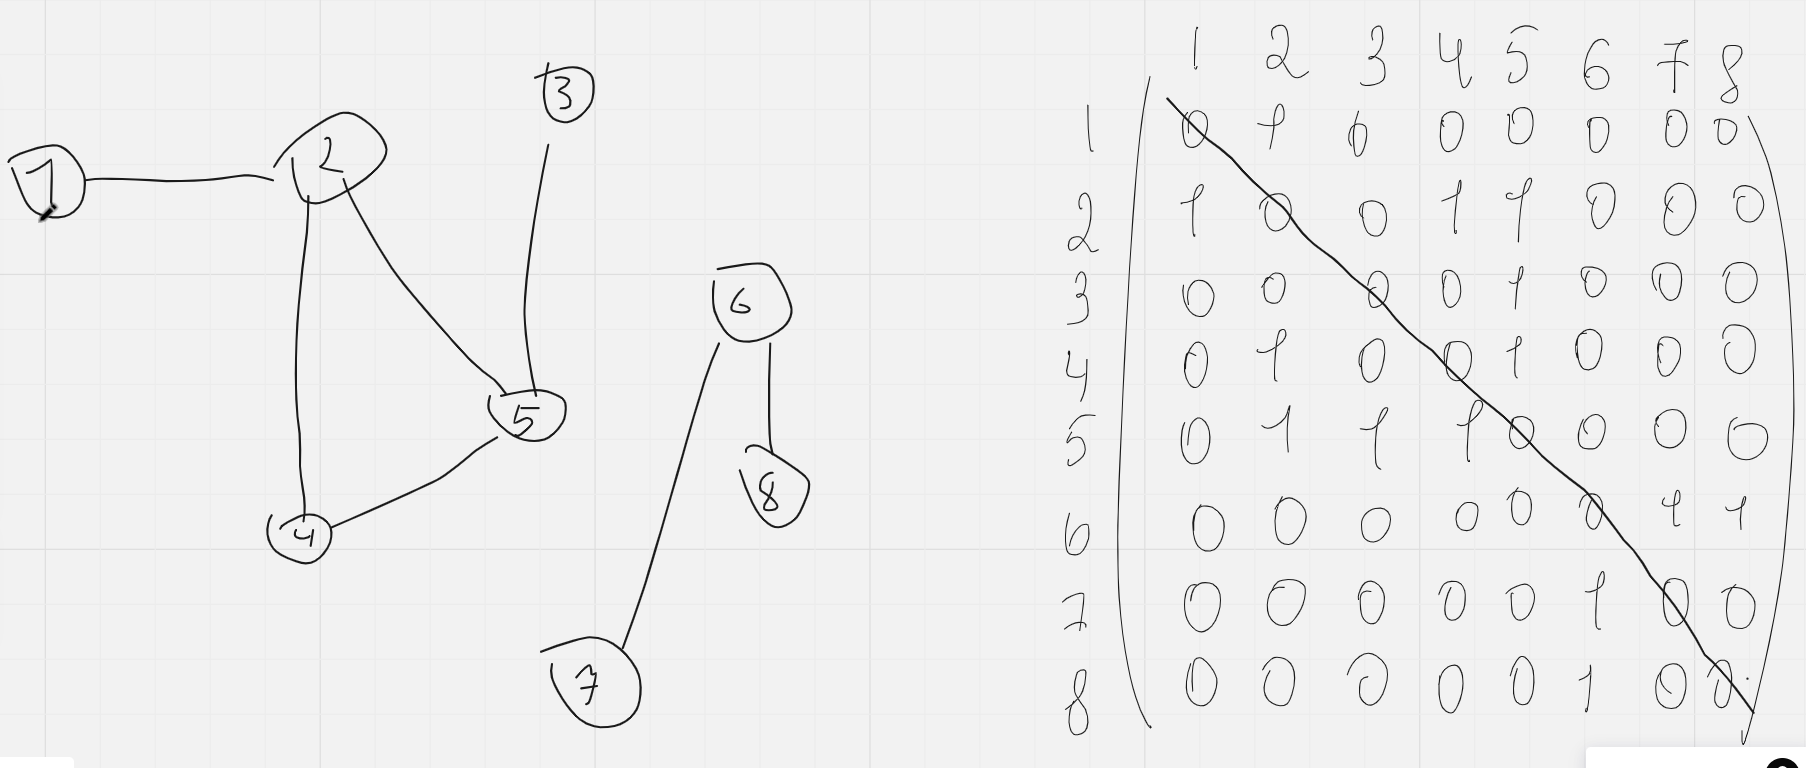 1
2
3
4
5
6
7
8
1 2 3 4 5 6 7 8
1 0 1 0 0 0 0 0 0
2 1 0 0 1 1 0 0 0
3 0 0 0 0 1 0 0 0
4 0 1 0 0 1 0 0 0
5 0 1 1 1 0 0 0 0
6 0 0 0 0 0 0 1 1
7 0 0 0 0 0 1 0 0
8 0 0 0 0 0 1 0 0